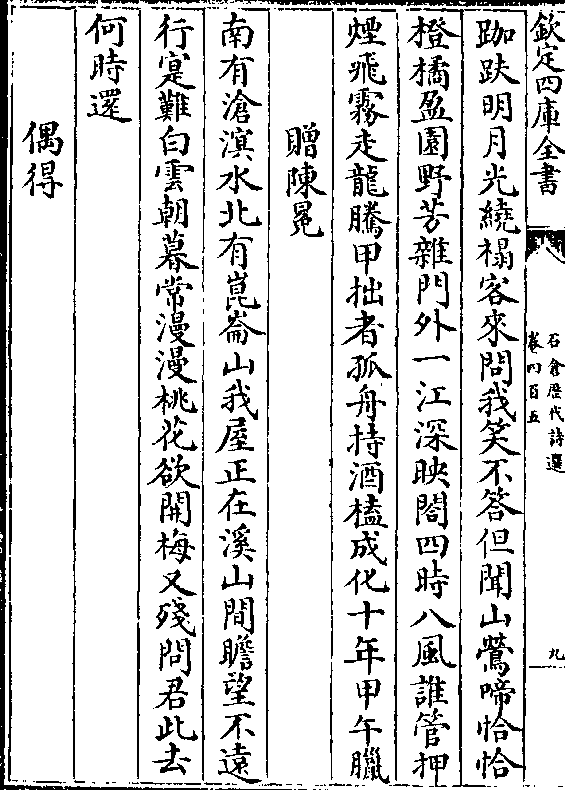 欽定四庫全書
石倉歴代詩選
卷四百五
九
跏趺明月光繞榻客來問我笑不答但聞山鶯啼恰恰
橙橘盈園野芳雜門外一江深映閤四時八風誰管押
煙飛霧走龍騰甲拙者孤舟持酒榼成化十年甲午臘
贈陳冕
南有滄溟水北有崑崙山我屋正在溪山間瞻望不遠
行寔難白雲朝暮常漫漫桃花欲開梅又殘問君此去
何時還
偶得